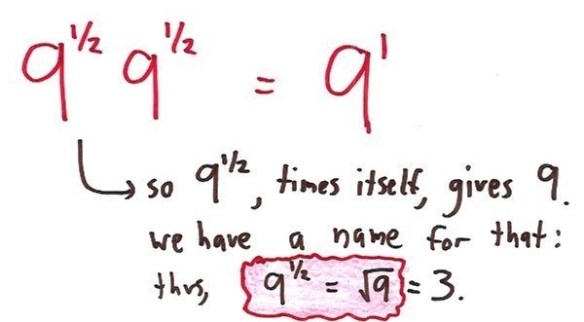 9^1/2 9^1/2 = 9^1
so 9^1/2, times itself, gives 9.
we have a name for that:
thus, 9^1/2 = √9 = 3.